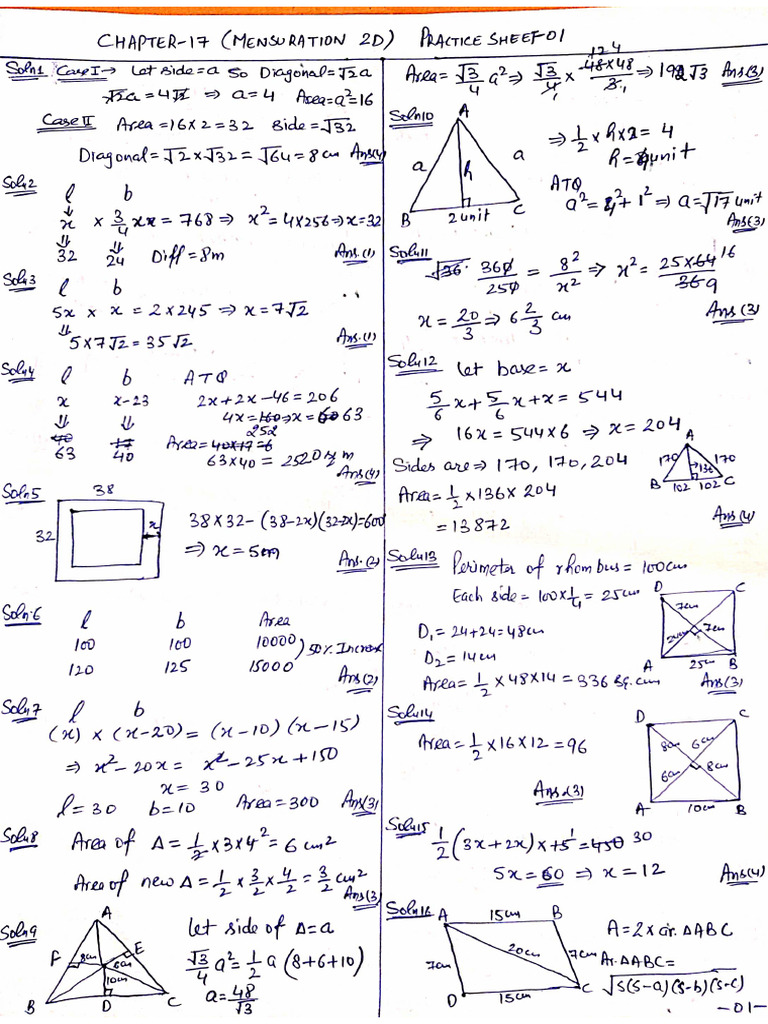 CHAPTER-17 (MENSURATION 2D) PRACTICE SHEET-01
Soln1 Case I→ Let side=a so Diagonal=√2a
√2a=4√2 ⇒ a=4 Area=a²=16
Case II Area=16×2=32 side=√32
Diagonal=√2×√32=√64=8cm Ans(4)
Soln2 l b
x × 3/4 x = 768 ⇒ x²=4×256⇒x=32
32 24 Diff=8m Ans.(1)
Soln3 l b
5x × x = 2×245 ⇒ x=7√2
5×7√2=35√2 Ans.(1)
Soln4 l b ATQ
x x-23 2x+2x-46=206
4x=252 ⇒x=63
63 40 Area=
63×40=2520 sq m
Ans(4)
Soln5 38
32 x 38×32-(38-2x)(32-2x)=600
⇒ x=5cm Ans.(2)
Soln6 l b Area
100 100 10000
120 125 15000 50% Increase
Ans(2)
Soln7 l b
(x) × (x-20) = (x-10) (x-15)
⇒ x²-20x = x²-25x+150
x=30
l=30 b=10 Area=300 Ans(3)
Soln8 Area of Δ=1/2×3×4=6cm²
Area of new Δ=1/2×3/2×4/2=3/2cm²
Ans(3)
Soln9 A Let side of Δ=a
F E 8cm 6cm 10cm
√3/4 a²=1/2 a(8+6+10)
B D C a=48/√3
Area=√3/4 a²⇒√3/4×48×48/3⇒192√3 Ans(3)
Soln10 A
a h a ⇒1/2×h×2=4
h=4unit
ATQ
B 2unit C a²=4²+1²⇒a=√17unit
Ans(3)
Soln11
360/250=8²/x²⇒x²=25×64/36
x=20/3⇒6 2/3 cm Ans(3)
Soln12 let base=x
5/6x+5/6x+x=544
⇒ 16x=544×6 ⇒ x=204
Sides are⇒170, 170, 204
A 170 136 170 B 102 102 C
Area=1/2×136×204
=13872 Ans(4)
Soln13 Perimeter of rhombus=100cm
Each side=100×1/4=25cm
D C 7cm 7cm 24cm A 25cm B
D₁=24+24=48cm
D₂=14cm
Area=1/2×48×14=336 sq.cm Ans(3)
Soln14 D C
Area=1/2×16×12=96 8cm 6cm 6cm 8cm
Ans(3) A 10cm B
Soln15
1/2(3x+2x)×15=450 30
5x=60 ⇒x=12 Ans(4)
Soln16 A 15cm B
A=2×ar.ΔABC
7cm 20cm 7cm Ar.ΔABC=
D 15cm C √s(s-a)(s-b)(s-c)
-01-